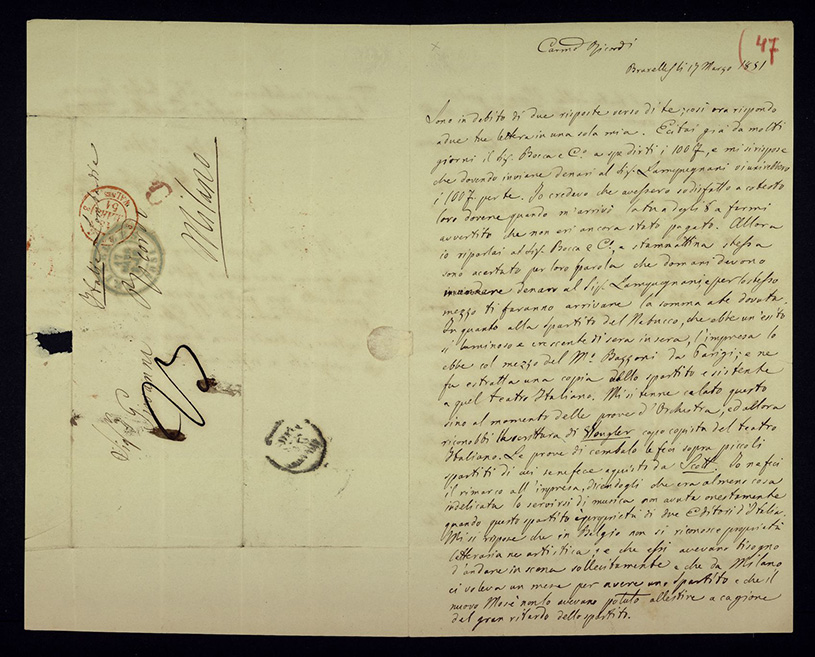 47
Carmo Ricordi
Bruxelles li 17 Marzo 1851
Sono in debito di due risposte verso di te; così ora rispondo
a due tue lettere in una sola mia. Ecitai già da molti
giorni il Sig. Bocca e C.o a spedirti i 100 f, e mi si rispose
che dovendo inviare denari al Sig. Lampugnani
i 100 f. per te. Io credevo che avessero sodisfatto a cotesto
loro dovere quando m'arrivò la tua degli 8 a fermi
avvertito che non eri ancora stato pagato. Allora
io riparlai al Sig. Bocca e C.o, e stammattina stessa
sono acertato per loro parola che domani devono
mandare denaro al Sig. Lampugnani e per lo stesso
mezzo ti faranno arrivare la somma a te dovuta.
In quanto alla spartito del Nabucco, che ebbe un'esito
sì luminoso e crescente di sera in sera, l'impresa lo
ebbe col mezzo del M.o Bazzoni da Parigi; e ne
fu estratta una copia dello spartito esistente
a quel teatro Italiano. Mi si tenne celato questo
sino al momento delle prove d'Orchestra, ed allora
riconobbi la scrittura di capo copista del teatro
Italiano. Le prove di cembalo le feci sopra piccoli
spartiti di cui se ne fece aquisto da Scott. Io ne feci
il rimarco all'impresa, dicendogli che era almeno cosa
indelicata lo servirsi di musica non avuta onestamente
quando questo spartito è proprietà di due Editori d'Italia.
Mi si rispose che in Belgio non si riconosce proprietà
letteraria ne artistica; e che essi avevano bisogno
d'andare in scena sollecitamente e che da Milano
ci voleva un mese per avere uno spartito e che il
nuovo Mosè non lo avevano potuto allestire a cagione
del gran ritardo dello spartito.
Giovanni Ricordi
Milano